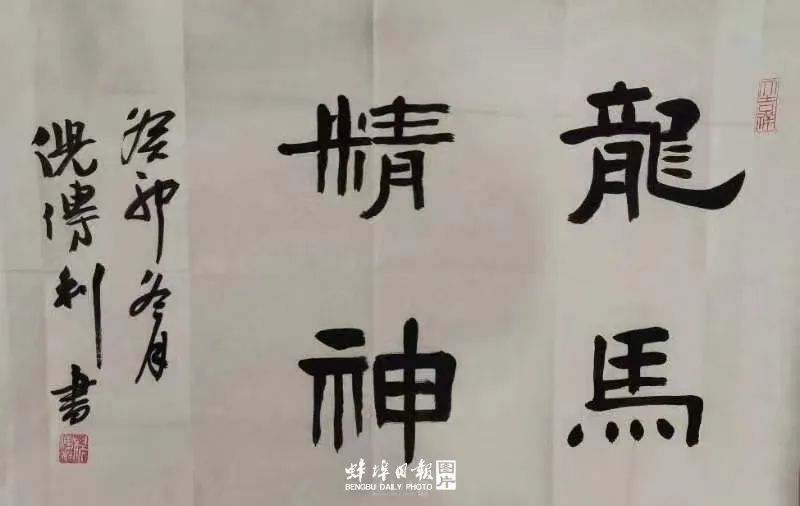 龍馬
精神
癸卯冬月
倪傳利書
蚌埠日報 图片
BENGBU DAILY PHOTO